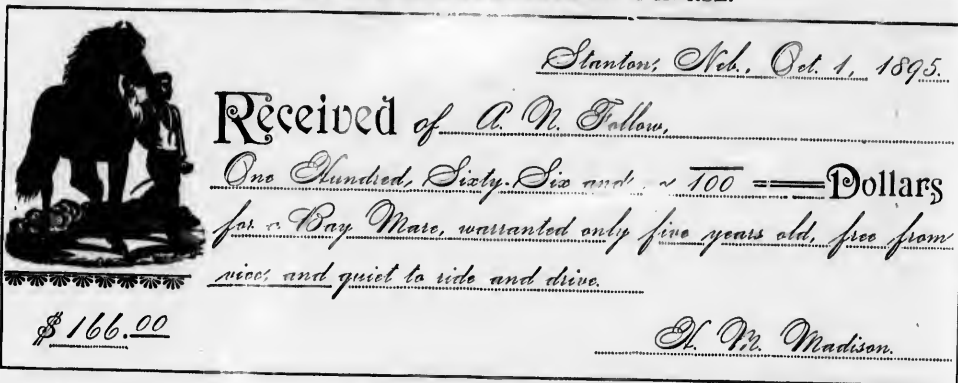 Stanton, Neb., Oct. 1, 1895.
Received of A. N. Fellow,
One Hundred, Sixty-Six and 100 Dollars
for a Bay Mare, warranted only five years old, free from
vice, and quiet to ride and drive.
$ 166.00
H. M. Madison.